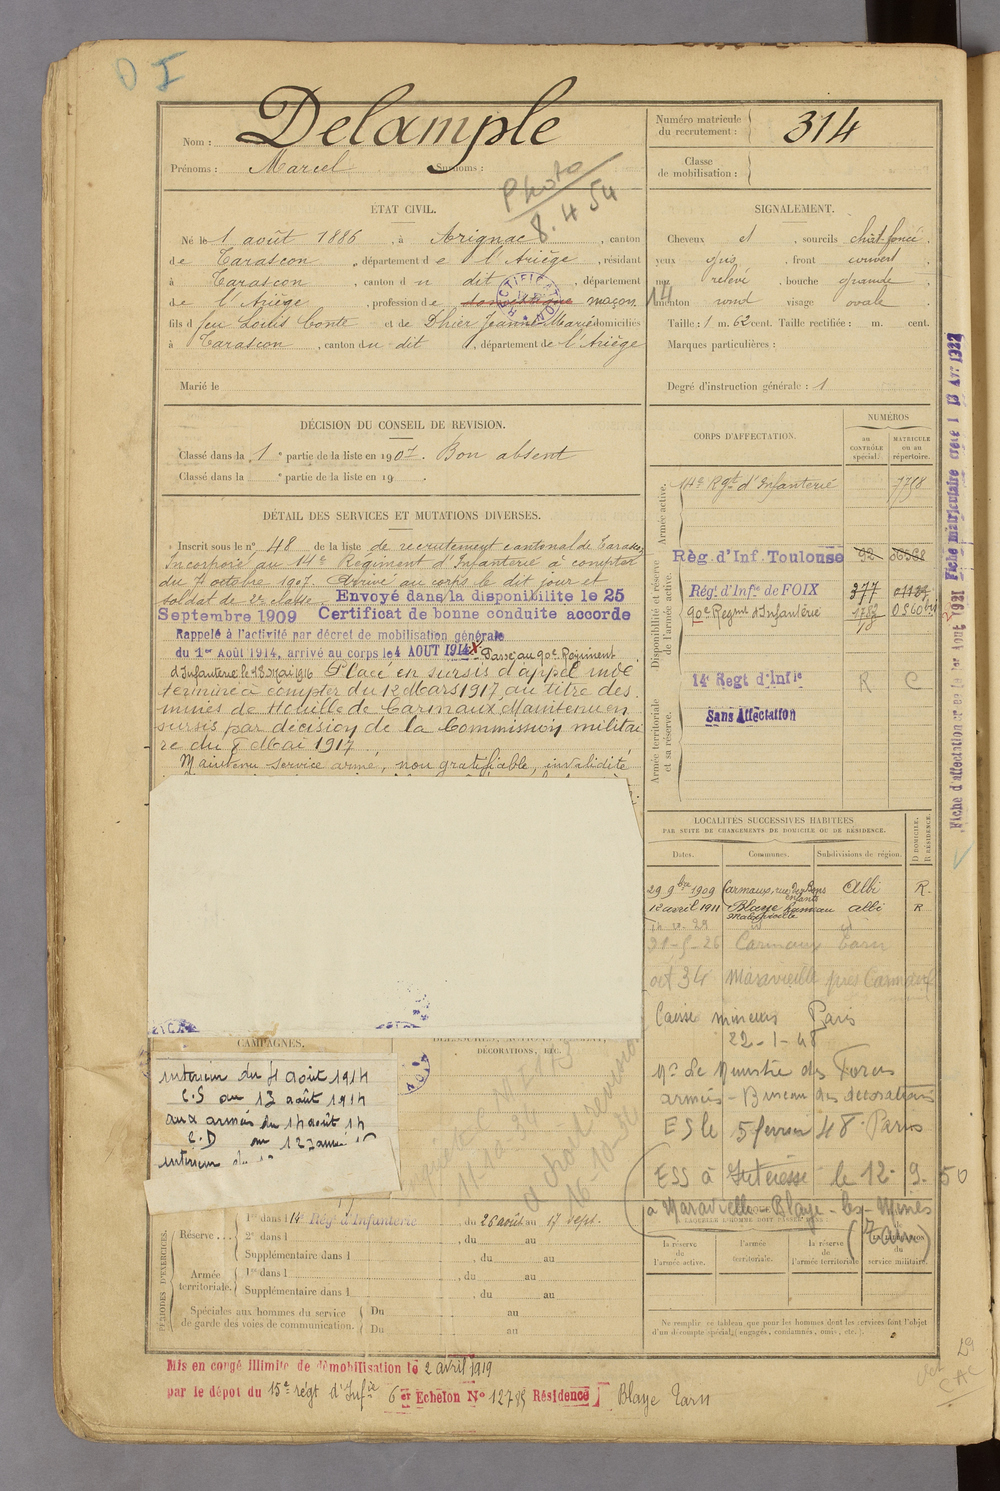 O I
Nom : Delample
Prénoms : Marcel Surnoms :
Photo
8.4 54
Numéro matricule
du recrutement : 314
Classe
de mobilisation :
ÉTAT CIVIL.
Né le 1 août 1886, à Arignac, canton
de Tarascon, département de l'Ariège, résidant
à Tarascon, canton du dit, département
de l'Ariège, profession de domestique maçon
fils d feu Louis Conte et de Dhier Jeanne Marie domiciliés
à Tarascon, canton du dit, département de l'Ariège
Marié le
SIGNALEMENT.
Cheveux et, sourcils chât foncé.
yeux gris, front couvert,
nez relevé, bouche grande,
menton rond visage ovale
Taille : 1 m. 62 cent. Taille rectifiée : m. cent.
Marques particulières :
Degré d'instruction générale : 1
DÉCISION DU CONSEIL DE REVISION.
Classé dans la 1e partie de la liste en 1907. Bon absent
Classé dans la e partie de la liste en 19 .
DÉTAIL DES SERVICES ET MUTATIONS DIVERSES.
Inscrit sous le n° 48 de la liste de recrutement cantonal de Tarascon
Incorporé au 14e Régiment d'Infanterie à compter
du 7 octobre 1907. Arrivé au corps le dit jour et
soldat de 2e classe. Envoyé dans la disponibilite le 25
Septembre 1909 Certificat de bonne conduite accorde
Rappelé à l'activité par décret de mobilisation générale
du 1er Août 1914, arrivé au corps le 4 AOUT 1914 Passé au 90e Régiment
d'Infanterie le 18 mai 1916 Placé en sursis d'appel indé
terminé à compter du 12 Mars 1917, au titre des
mines de Houille de Carmaux Maintenu en
sursis par décision de la Commission militai
re du 8 Mai 1917
Maintenu service armé, non gratifiable, invalidité
CORPS D'AFFECTATION.
NUMÉROS
au
CONTRÔLE
spécial.
MATRICULE
ou au
répertoire.
Armée active.
14e Rgt d'Infanterie 7718
Disponibilité et réserve
de l'armée active.
Règ. d'Inf. Toulouse 92
Régt. d'Infie de FOIX 377 01122
90e Régim d'Infanterie 1782
Armée territoriale
et sa réserve.
14e Regt d'Infie R C
Sans Affectation
Fiche d'affectation créée le 1er Août 1931 Fiche matriculaire créée l 13 Avr 1932
LOCALITÉS SUCCESSIVES HABITÉES
PAR SUITE DE CHANGEMENTS DE DOMICILE OU DE RÉSIDENCE.
Dates. Communes. Subdivisions de région. D DOMICILE. R RÉSIDENCE.
29 9bre 1909 Carmaux, rue des Bons enfants Albi R.
12 avril 1911 Blaye hameau albi R
Carmaux Tarn
oct 34 Maravieille près Carmaux
Caisse mineurs Paris
22-1-48
Mr Le Ministre des Forces
armées - Bureau des décorations
ES le 5 fevrier 48. Paris
ESS à Intéressé le 12. 9. 50
à Maravielle Blaye-les-Mines
(Tarn)
CAMPAGNES.
DÉCORATIONS, ETC.
interieur du 4 août 1914
C.S au 13 août 1914
aux armées du 14 août 14
C.D au 12
interieur
16-10-36
PÉRIODES D'EXERCICES.
Réserve . . .
1re dans l 14e Rég d'Infanterie, du 26 août au 17 sept.
2e dans l , du au
Supplémentaire dans l , du au
Armée
territoriale.
1re dans l , du au
Supplémentaire dans l , du au
Spéciales aux hommes du service
de garde des voies de communication.
Du au
Du au
LAQUELLE L'HOMME DOIT PASSER DANS
la réserve
de
l'armée active.
l'armée
territoriale.
la réserve
de
l'armée territoriale
du
service militaire.
Ne remplir ce tableau que pour les hommes dont les services font l'objet
d'un décompte spécial (engagés, condamnés, omis, etc.).
Mis en congé illimité de démobilisation le 2 avril 1919
par le dépot du 15e régt d'Infie 6er Echelon No 12785 Résidence Blaye Tarn